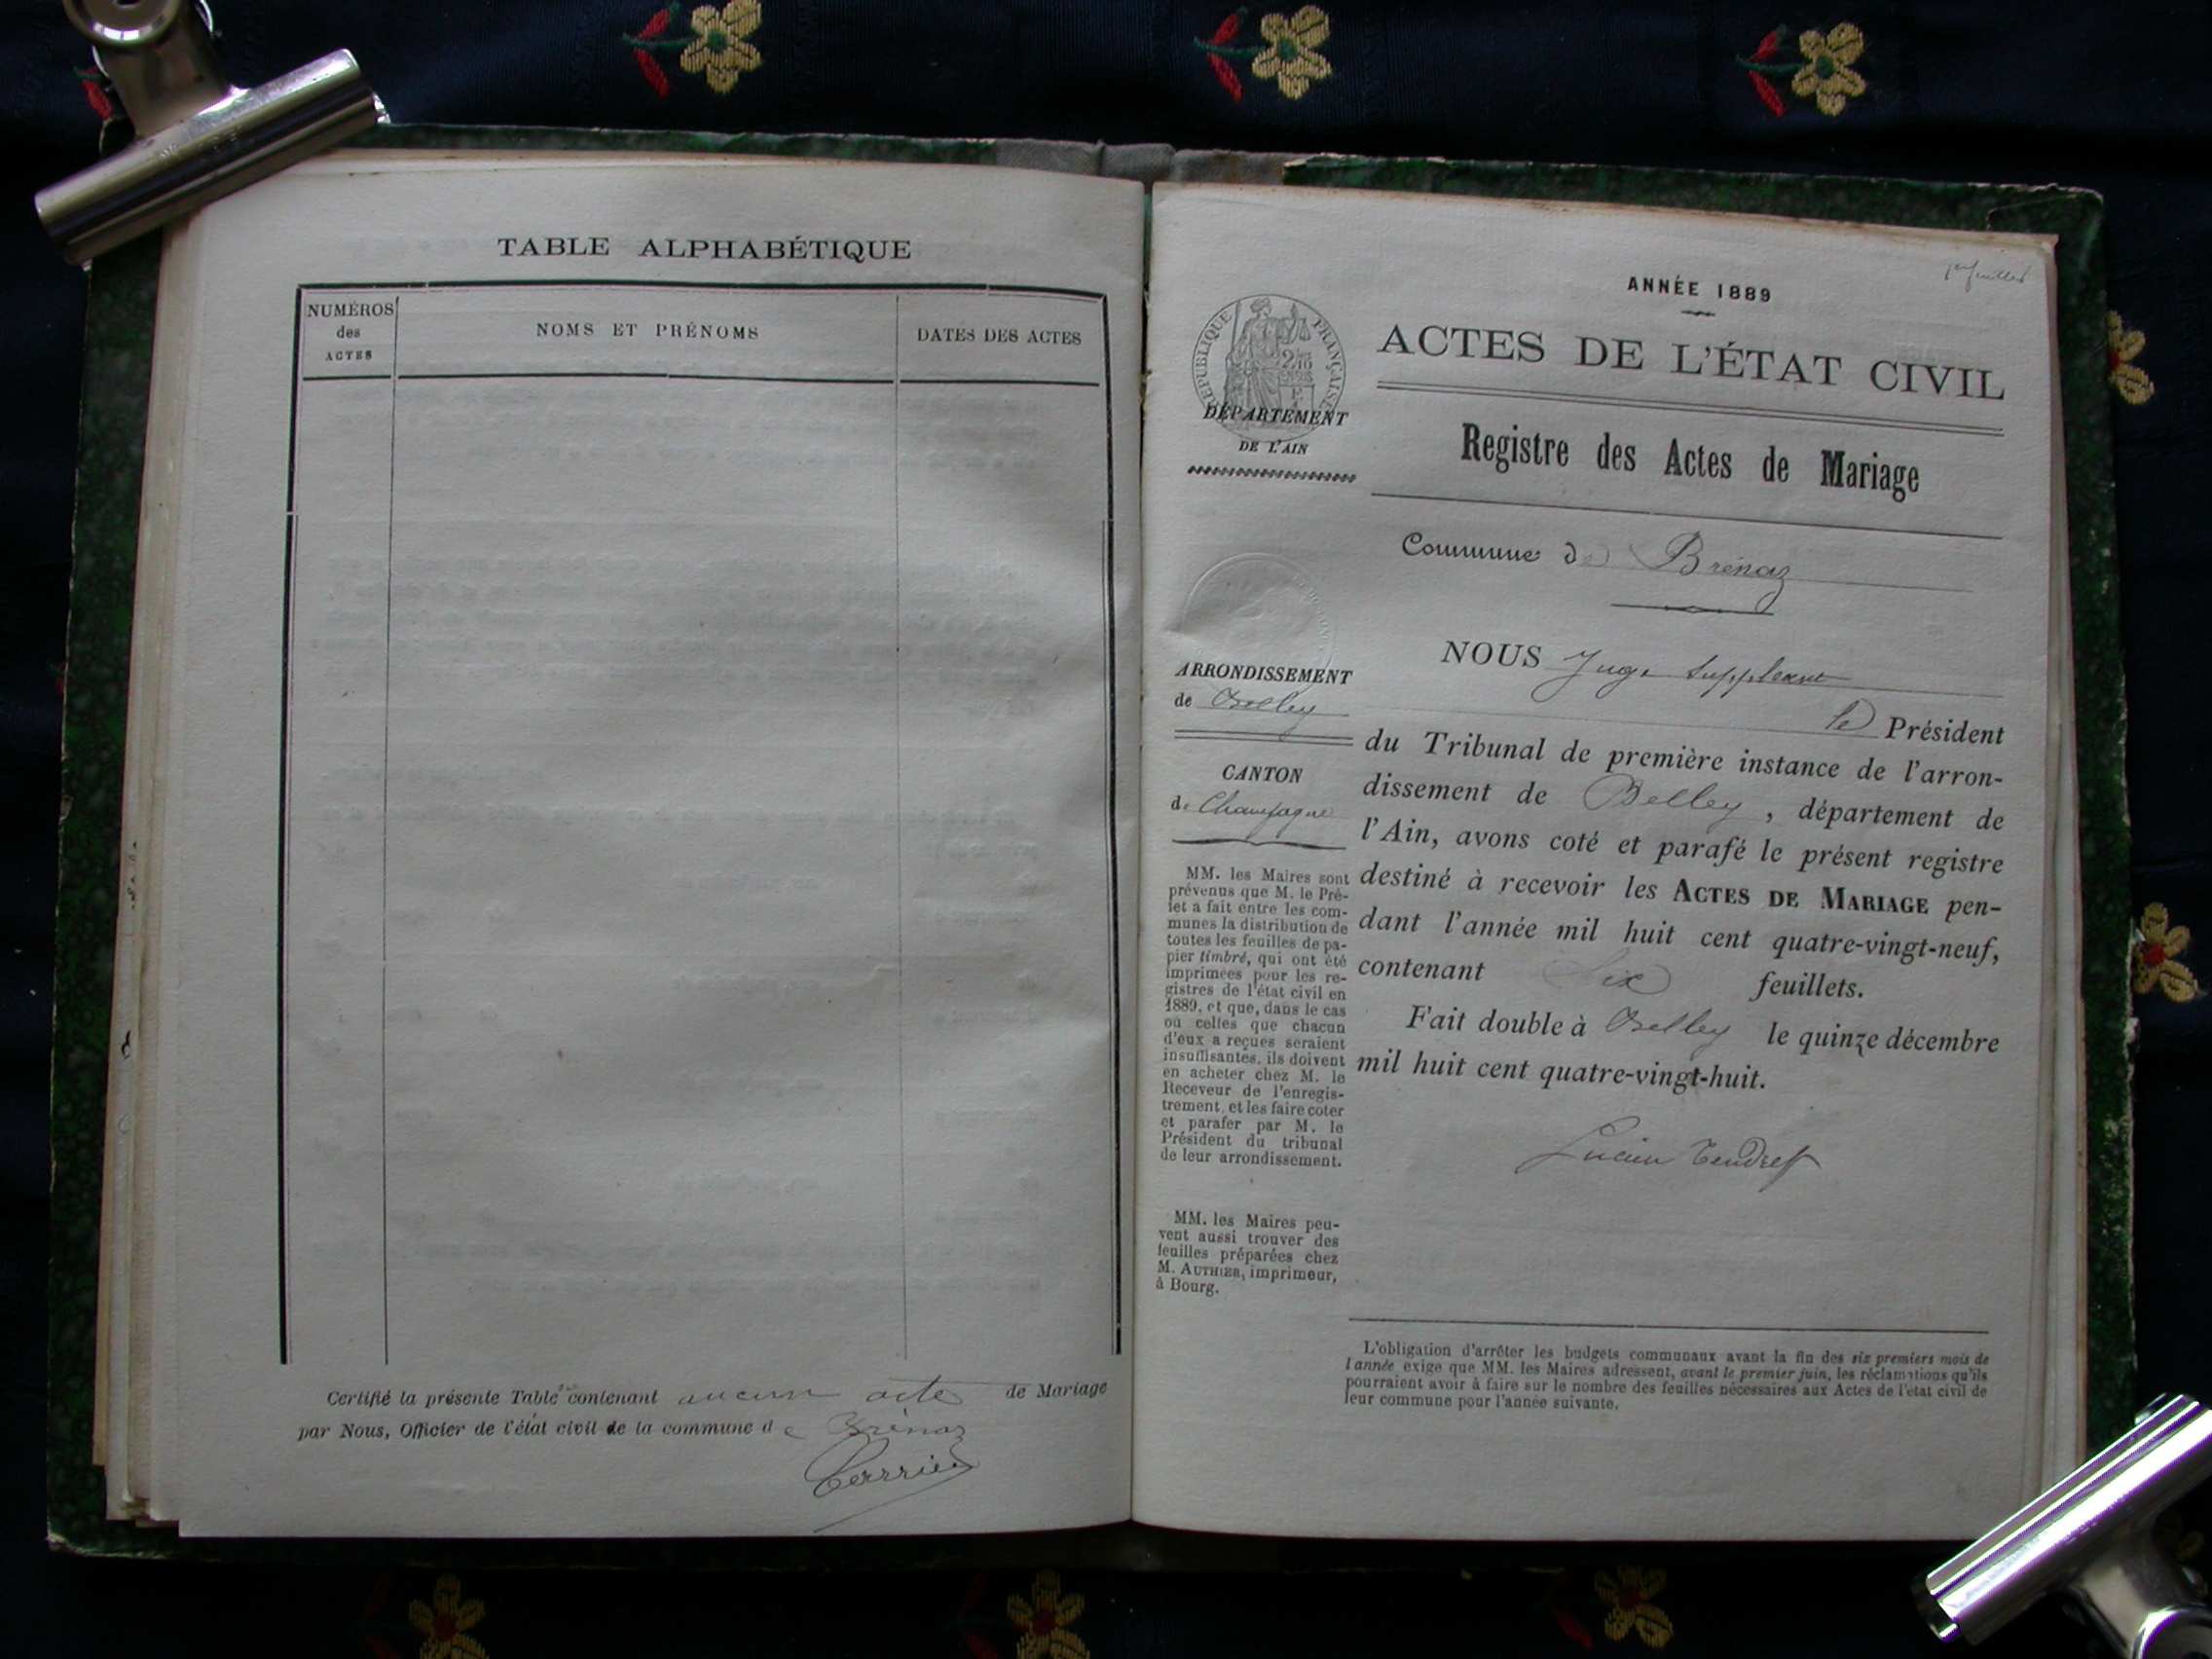 TABLE ALPHABÉTIQUE
NUMÉROS
des
ACTES
NOMS ET PRÉNOMS
DATES DES ACTES
Certifié la présente Table contenant aucun acte de Mariage
par Nous, Officier de l'état civil de la commune de Brénaz
1er feuillet
ANNÉE 1889
ACTES DE L'ÉTAT CIVIL
Registre des Actes de Mariage
RÉPUBLIQUE FRANÇAISE
DÉPARTEMENT
DE L'AIN
Commune de Brénaz
ARRONDISSEMENT
de Belley
CANTON
de Champagne
MM. les Maires sont
prévenus que M. le Pré-
fet a fait entre les com-
munes la distribution de
toutes les feuilles de pa-
pier timbré, qui ont été
imprimées pour les re-
gistres de l'état civil en
1889, et que, dans le cas
où celles que chacun
d'eux a reçues seraient
insuffisantes, ils doivent
en acheter chez M. le
Receveur de l'enregis-
trement, et les faire coter
et parafer par M. le
Président du tribunal
de leur arrondissement.
MM. les Maires peu-
vent aussi trouver des
feuilles préparées chez
M. AUTHIER, imprimeur,
à Bourg.
NOUS Juge suppléant
le Président
du Tribunal de première instance de l'arron-
dissement de Belley, département de
l'Ain, avons coté et parafé le présent registre
destiné à recevoir les ACTES DE MARIAGE pen-
dant l'année mil huit cent quatre-vingt-neuf,
contenant six feuillets.
Fait double à Belley le quinze décembre
mil huit cent quatre-vingt-huit.
Lucien Tendret
L'obligation d'arrêter les budgets communaux avant la fin des six premiers mois de
l'année exige que MM. les Maires adressent, avant le premier juin, les réclamations qu'ils
pourraient avoir à faire sur le nombre des feuilles nécessaires aux Actes de l'état civil de
leur commune pour l'année suivante.